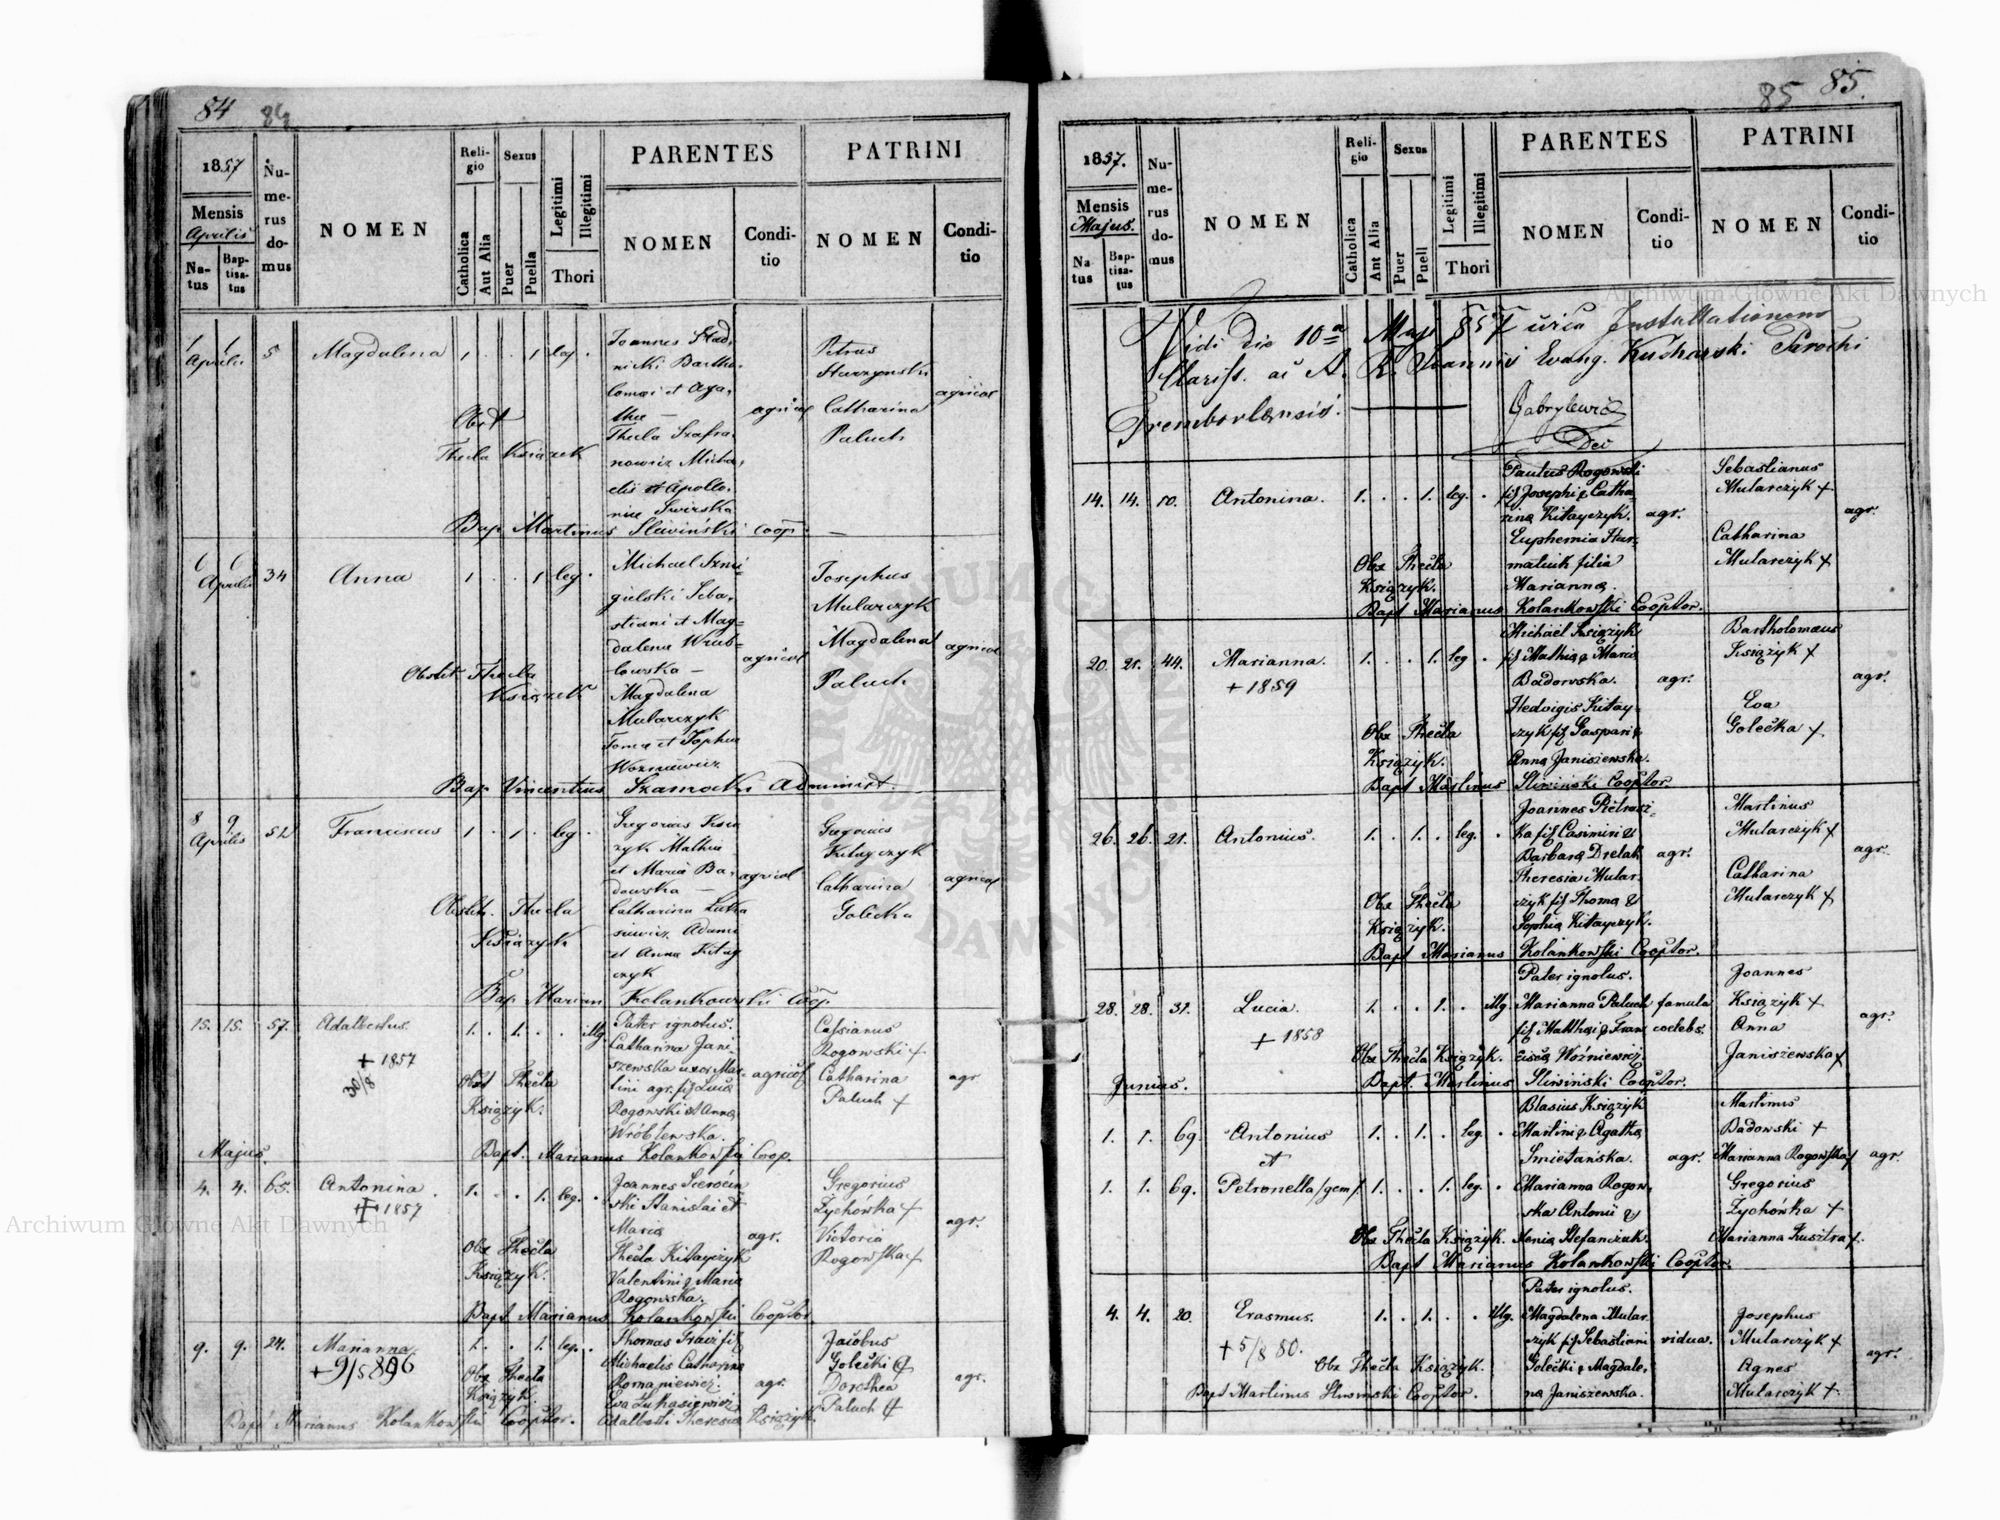 84 84
1857
Mensis
Aprilis
Natus
Baptisatus
Numerus domus
NOMEN
Religio
Catholica
Aut Alia
Sexus
Puer
Puella
Legitimi
Illegitimi
Thori
PARENTES
NOMEN
Conditio
PATRINI
NOMEN
Conditio
1 1
Aprilis
5
Magdalena
1 . . 1 leg .
Joannes
Bartho-
lomaei et Aga-
tha —
Thecla Szafra-
nowicz Micha-
elis et Apollo-
niae Swirska
agricol
Petrus
Starzynski
Catharina
Paluch
agricol
Obst
Thecla Książek
Bap. Martinus Sliwiński Coop. —
6 6
Aprilis
34
Anna
1 . . 1 leg .
Michael Szmi-
gielski Seba-
stiani et Mag-
dalena Wrub-
lewska —
Magdalena
Mularczyk
Toma et Sophia
Wozniewicz
agricol
Josephus
Mularczyk
Magdalena
Paluch
agricol
Obstet. Thecla
Książek
Bap. Vincentius Szamocki Administ.
8 9
Aprilis
52
Franciscus
1 . 1 . leg .
Gregorius Ksią
zyk Mathia
et Maria Ba-
dowska —
Catharina Luka
siewicz Adami
et Anna Kitay
czyk
agricol
Gregorius
Kitayczyk
Catharina
Golecka
agricol
Obstetr. Thecla
Książyk
Bap. Marian Kolankowski Coop.
15. 15. 57.
Adalbertus.
+ 1857
30/8
1. . 1. . . illg.
Pater ignotus.
Catharina Jani-
szewska uxor Mar-
tini agr. fil Luca
Rogowski et Anna
Wróblewska.
agricol
Cassianus
Rogowski +
Catharina
Paluch +
agr.
Obst Thecla
Książyk.
Bapt. Marianus Kolankowski Coop.
Majus.
4. 4. 65.
Antonina.
+ 1857
1. . . 1. leg. .
Joannes
ski Stanislai et
Maria
Thecla Kitayczyk
Valentini & Maria
Rogowska.
agr.
Gregorius
Zychówka +
Victoria
Rogowska +
agr.
Obs Thecla
Książyk.
Bapt Marianus Kolankowski Cooptor
9. 9. 24.
Marianna.
+9/5 896
1. . . 1. leg. .
Thomas
Michaelis Catharina
Romaniewicz
Eva Lukasiewicz
Adalberti Theresia Książyk.
agr.
Jacobus
Golecki +
Dorothea
Paluch +
agr.
Obs Thecla
Książyk.
Bapt Marianus Kolankowski Cooptor.
85 85.
1857.
Mensis
Majus.
Natus
Baptisatus
Numerus domus
NOMEN
Religio
Catholica
Ant Alia
Sexus
Puer
Puell
Legitimi
Illegitimi
Thori
PARENTES
NOMEN
Conditio
PATRINI
NOMEN
Conditio
Vidi die 10a Maji 857 circa Installationem
Clariss. ac A. R. Joannis Evang. Kucharski Parochi
Trembovlensis.
Gabrylewicz
Dec
14. 14. 10.
Antonina.
1. . . 1. leg. .
Paulus Rogowski
fil Josephi & Catha-
rina Kitayczyk.
Euphemia Har-
matiuk filia
Marianna.
agr.
Sebastianus
Mularczyk +
Catharina
Mularczyk +
agr.
Obs Thecla
Książyk.
Bapt Marianus Kolankowski Cooptor.
20. 21. 44.
Marianna.
+ 1859
1. . . 1. leg .
Michael Książyk
fil Mathia & Maria
Badowska.
Hedvigis Kitay-
czyk fil Gaspari &
Anna Janiszewska.
agr.
Bartholomaeus
Książyk +
Eva
Golecka +
agr.
Obs Thecla
Książyk.
Bapt Martinus Sliwiński Cooptor.
26. 26. 21.
Antonius.
1. . 1. . leg. .
Joannes Pietrasz-
ka fil Casimiri &
Barbara Drelak
Theresia Mular-
czyk fil Thoma &
Sophia Kitayczyk.
agr.
Martinus
Mularczyk +
Catharina
Mularczyk +
agr.
Obs Thecla
Książyk.
Bapt Marianus Kolankowski Cooptor.
28. 28. 31.
Lucia.
+ 1858
1. . . 1. . illg.
Pater ignotus.
Marianna Paluch famula
fil Matthai & Fran coelebs.
cisca Woźniewicz.
Joannes
Książyk +
Anna
Janiszewska +
agr.
Obs Thecla Książyk.
Bapt. Martinus Sliwiński Cooptor.
Junius.
1. 1. 69.
Antonius
et
1. . 1. . leg. .
Blasius Książyk
Martini & Agatha
Smietańska.
agr.
Martinus
Badowski +
Marianna Rogowska +
agr.
1. 1. 69.
Petronella /gem/
1. . . 1. leg. .
Marianna Rogow-
ska Antonii &
Xenia Stefańczuk.
Gregorius
Zychówka +
Marianna Kusztra +.
Obs Thecla Książyk.
Bapt Marianus Kolankowski Cooptor.
4. 4. 20.
Erasmus.
+ 5/8 80.
1. . 1. . . illg.
Pater ignotus.
Magdalena Mular
czyk fil Sebastiani vidua.
Golecki & Magdale-
na Janiszewska.
Josephus
Mularczyk +
Agnes
Mularczyk +
agr.
Obs Thecla Książyk.
Bapt Martinus Sliwinski Cooptor.
Archiwum Główne Akt Dawnych
Archiwum Główne Akt Dawnych
ARCHIWUM GŁÓWNE AKT DAWNYCH